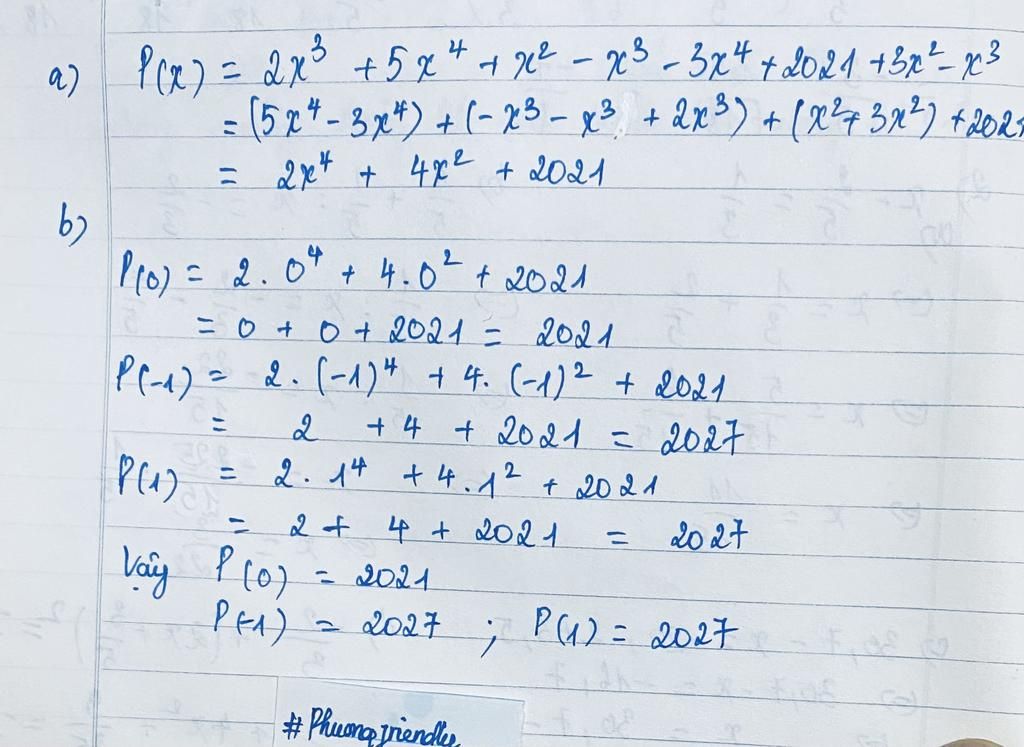 a) P(x) = 2x³ + 5x⁴ + x² - x³ - 3x⁴ + 2021 + 3x² - x³
= (5x⁴ - 3x⁴) + (-x³ - x³ + 2x³) + (x² + 3x²) + 2021
= 2x⁴ + 4x² + 2021
b)
P(0) = 2 . 0⁴ + 4 . 0² + 2021
= 0 + 0 + 2021 = 2021
P(-1) = 2 . (-1)⁴ + 4 . (-1)² + 2021
= 2 + 4 + 2021 = 2027
P(1) = 2 . 1⁴ + 4 . 1² + 2021
= 2 + 4 + 2021 = 2027
Vậy P(0) = 2021
P(-1) = 2027 ; P(1) = 2027
#Phuongfriendly